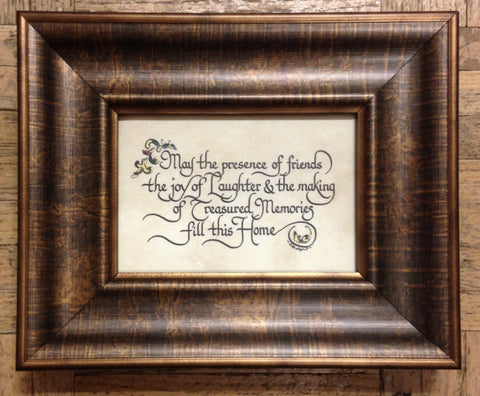 May the presence of friends
the joy of Laughter & the making
of Treasured Memories
fill this Home